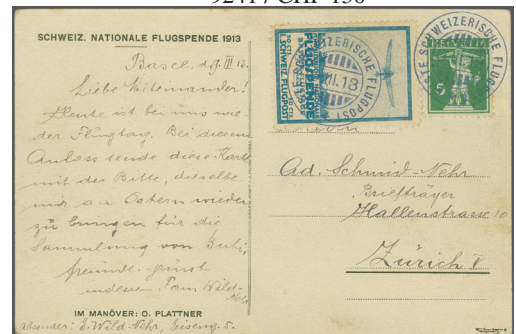 92417 CHF 150
SCHWEIZ. NATIONALE FLUGSPENDE 1913
Basel, d. 9. III 13.
Liebe Miteinander!
Heute ist bei uns wie-
der Flugtag. Bei diesem
Anlass sende diese Karte
mit der Bitte, dieselbe
mir a/ Ostern wieder
zu bringen für die
Sammlung von
freunde.
Fam Wild-
Nehr
IM MANÖVER: O. PLATTNER
Absender: E. Wild-Nehr, 5.
SCHWEIZERISCHE FLUGPOST
FLUGSPENDE
I. SCHWEIZ. FLUGPOST
50 CTS.
III.13
ERSTE SCHWEIZERISCHE FLUGPOST
HELVETIA
5
Ad. Schmid-Nehr
Briefträger
Hallenstrasse 10
Zürich V